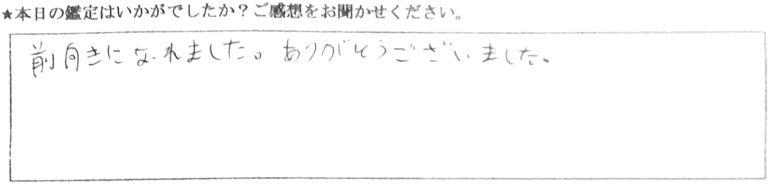 ★本日の鑑定はいかがでしたか？ご感想をお聞かせください。
前向きになれました。ありがとうございました。